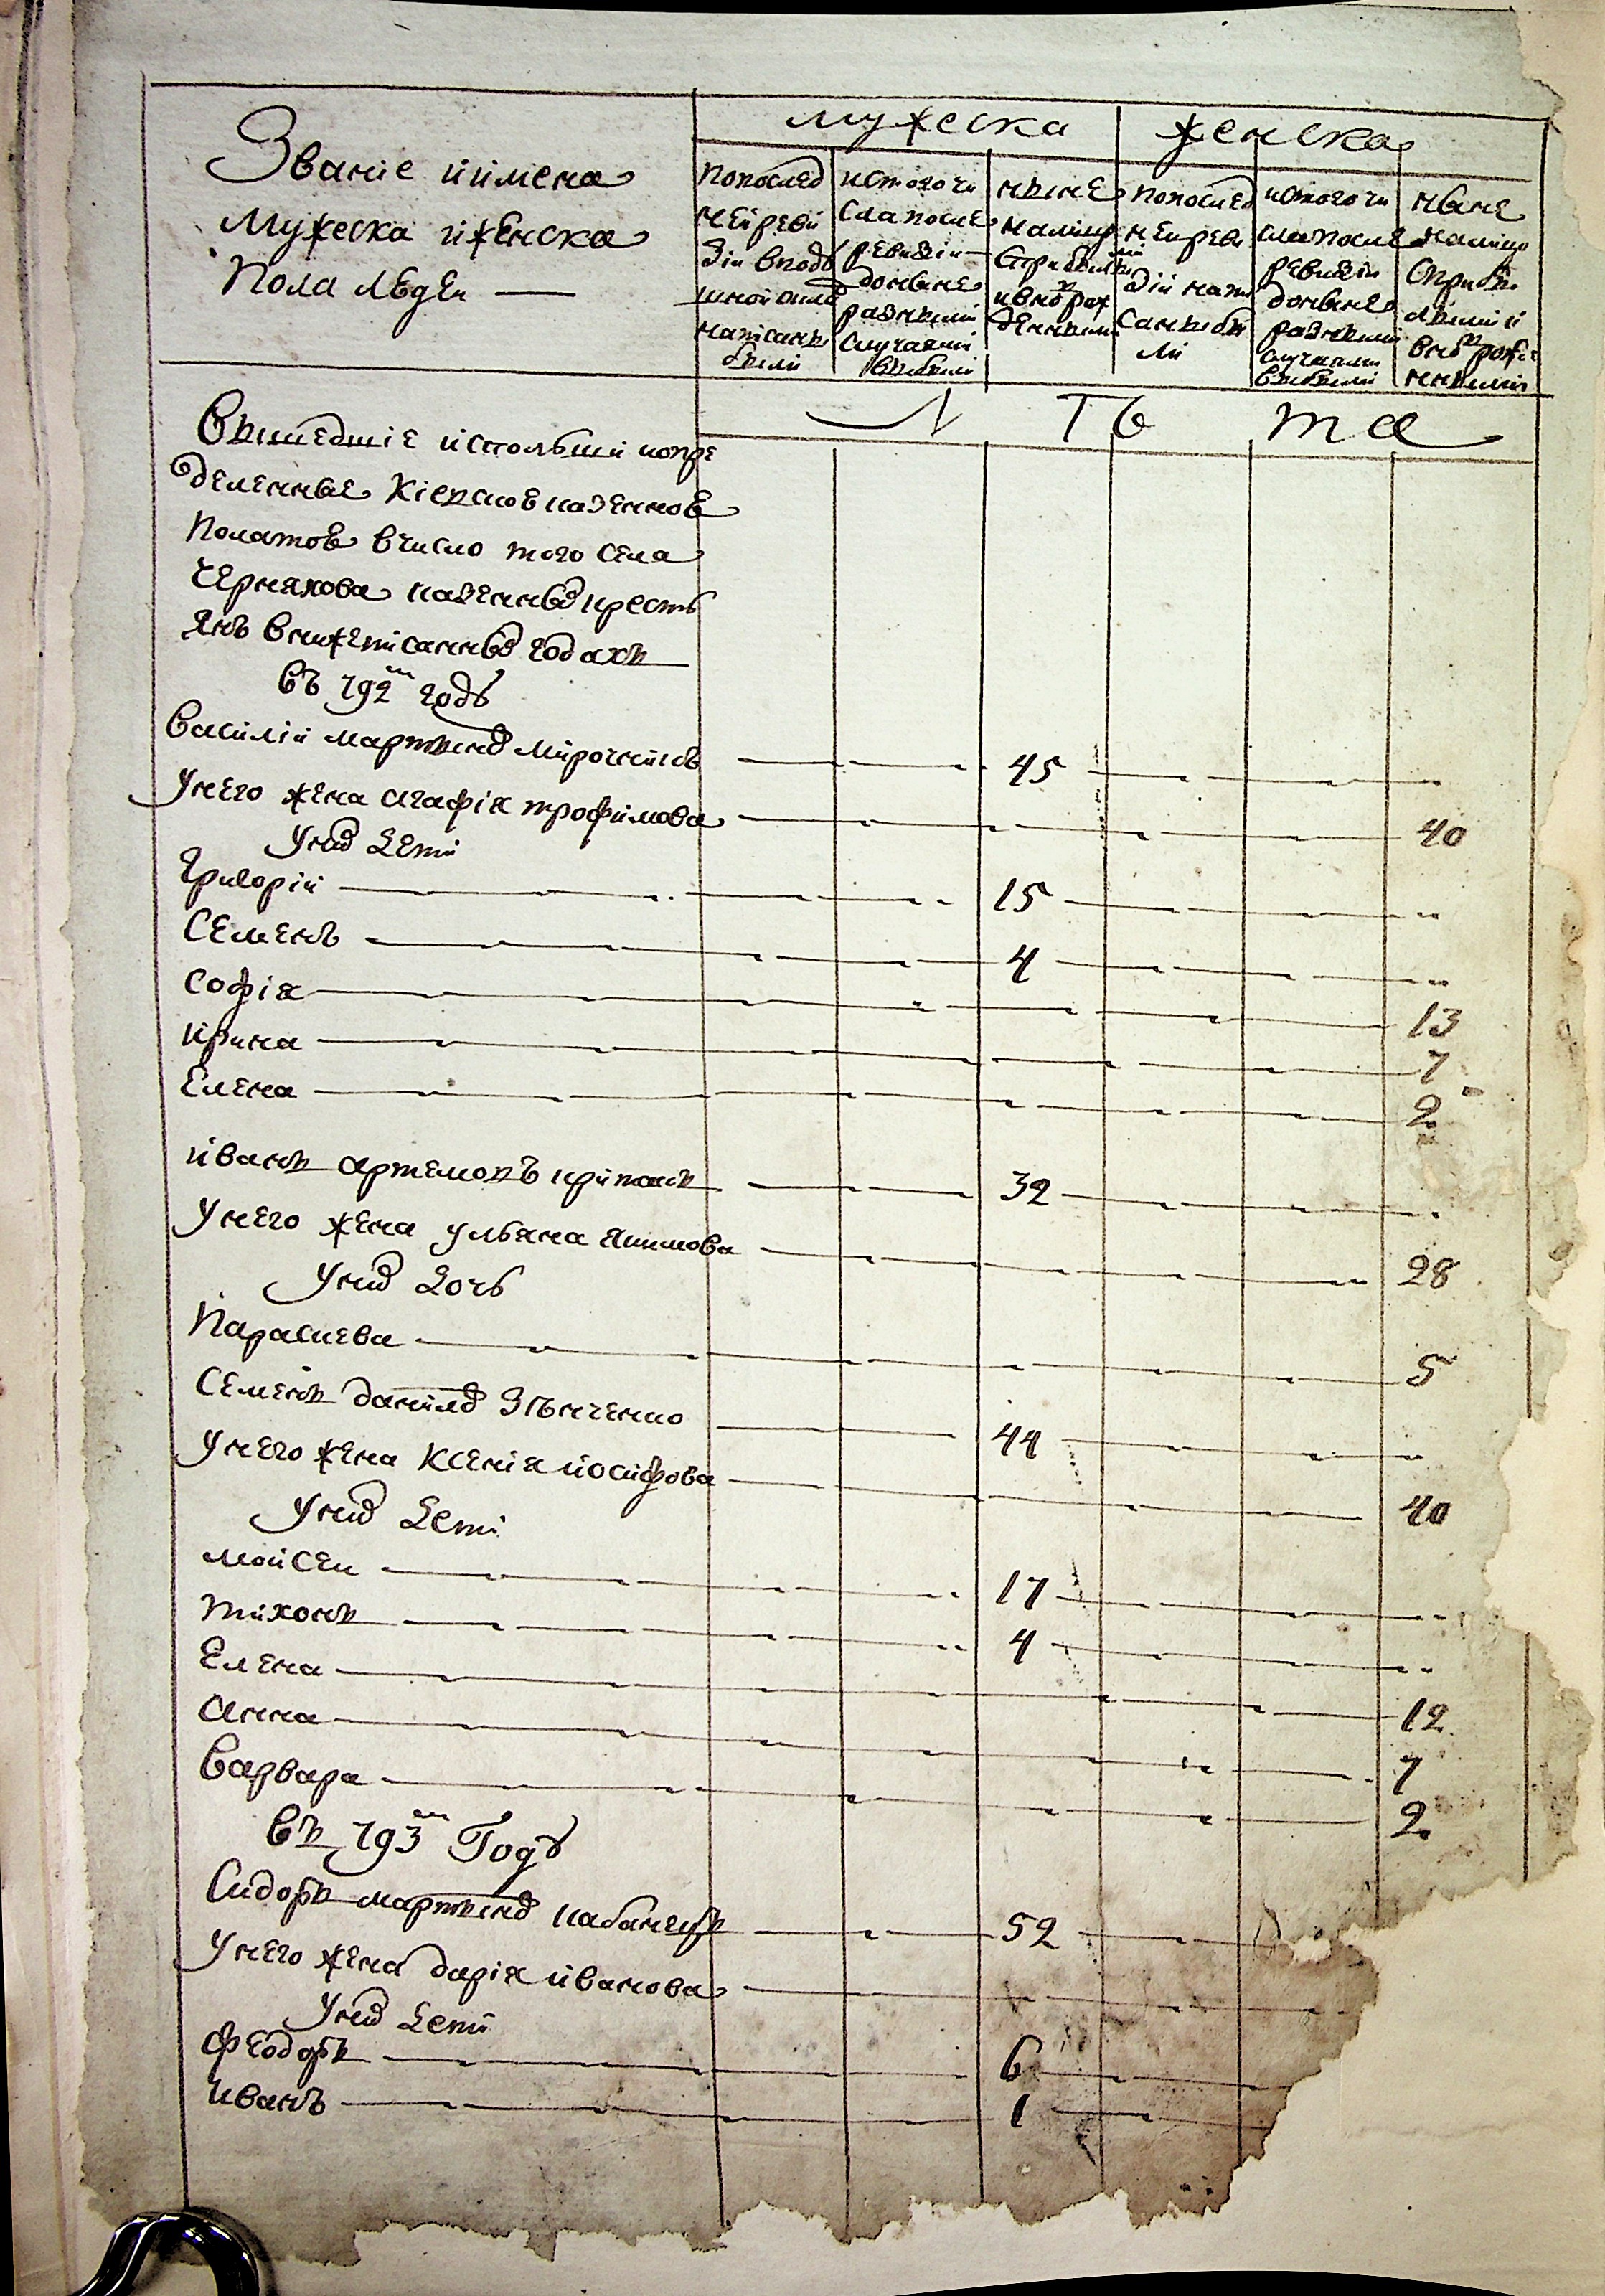 Званіе иимена
Мужеска иженска
Пола людеи
мужеска
женска
Попослед
ней реви
зіи вподу
шной окла
написаны
были
истого чи
сла после
ревизіи
доныне
разными
случаями
выбыли
ныне
налицо
сприбылы
ми
ивновъ рож
денными
Попослед
неи реви
зіи напи
саны бы
ли
истого чи
сла после
ревизіи
доныне
разными
случаями
выбыли
ныне
налицо
сприбы
лыми и
вновъ рожде
нными
Лѣта
Вышедшіе
деленные Кіевскоекazенное
Полатое вчисло того села
Чернякова казенныхъ кресть
янъ внижеписанныхъ годахъ
въ 792м годѣ
василіи мартыновъ мирочникъ 45
Унего жена агафія трофимова 40
Унихъ дети
Григоріи 15
Семенъ 4
софія 13
ирина 7
Елена 2
иванъ артемовъ 32
Унего жена ульяна якимова 28
Унихъ дочь
Параскева 5
Семенъ данилов Зѣнченко 44
Унего жена Ксенія иосифова 40
Унихъ дети
моисеи 17
тихонъ 4
Елена 12
анна 7
варвара 2
въ 793м Годѣ
Сидоръ мартыновъ кабанецъ 52
Унего жена дарія иванова
Унихъ дети
феодоръ 6
иванъ 1